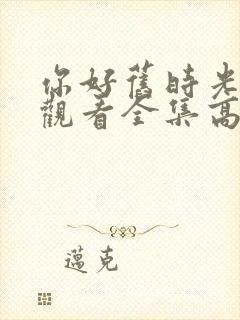 你好舊時光
觀看全集高
邁克